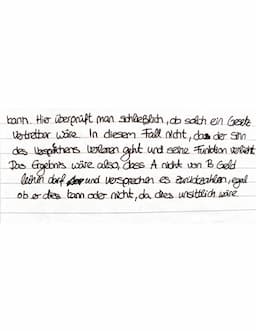 kann. Hier überprüft man schließlich, ob solch ein Gesetz
vertretbar wäre. In diesem Fall nicht, da der Sinn
des Versprechens verloren geht und seine Funktion verliert.
Das Ergebnis wäre also, dass A nicht von B Geld
leihen darf und versprechen es zurückzahlen, egal
ob er dies kann oder nicht, da dies unsittlich wäre